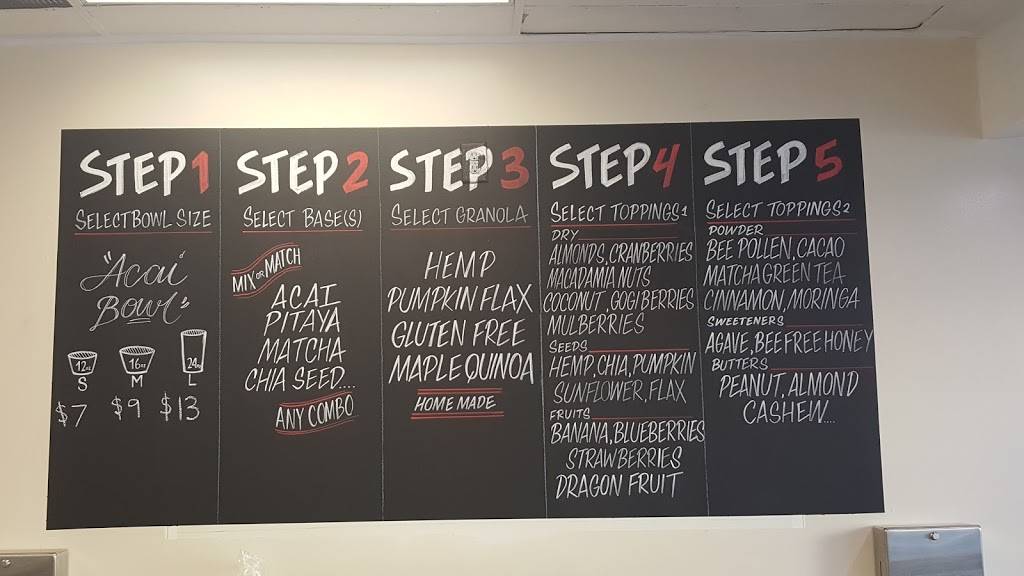 STEP 1
SELECT BOWL SIZE
"Acai
Bowl"
12oz 16oz 24oz
S M L
$7 $9 $13
STEP 2
SELECT BASE(S)
MIX OR MATCH
ACAI
PITAYA
MATCHA
CHIA SEED....
ANY COMBO
STEP 3
SELECT GRANOLA
HEMP
PUMPKIN FLAX
GLUTEN FREE
MAPLE QUINOA
HOME MADE
STEP 4
SELECT TOPPINGS 1
DRY
ALMONDS, CRANBERRIES
MACADAMIA NUTS
COCONUT, GOGI BERRIES
MULBERRIES
SEEDS
HEMP, CHIA, PUMPKIN
SUNFLOWER, FLAX
FRUITS
BANANA, BLUEBERRIES
STRAWBERRIES
DRAGON FRUIT
STEP 5
SELECT TOPPINGS 2
POWDER
BEE POLLEN, CACAO
MATCHA GREEN TEA
CINNAMON, MORINGA
SWEETENERS
AGAVE, BEE FREE HONEY
BUTTERS
PEANUT, ALMOND
CASHEW....